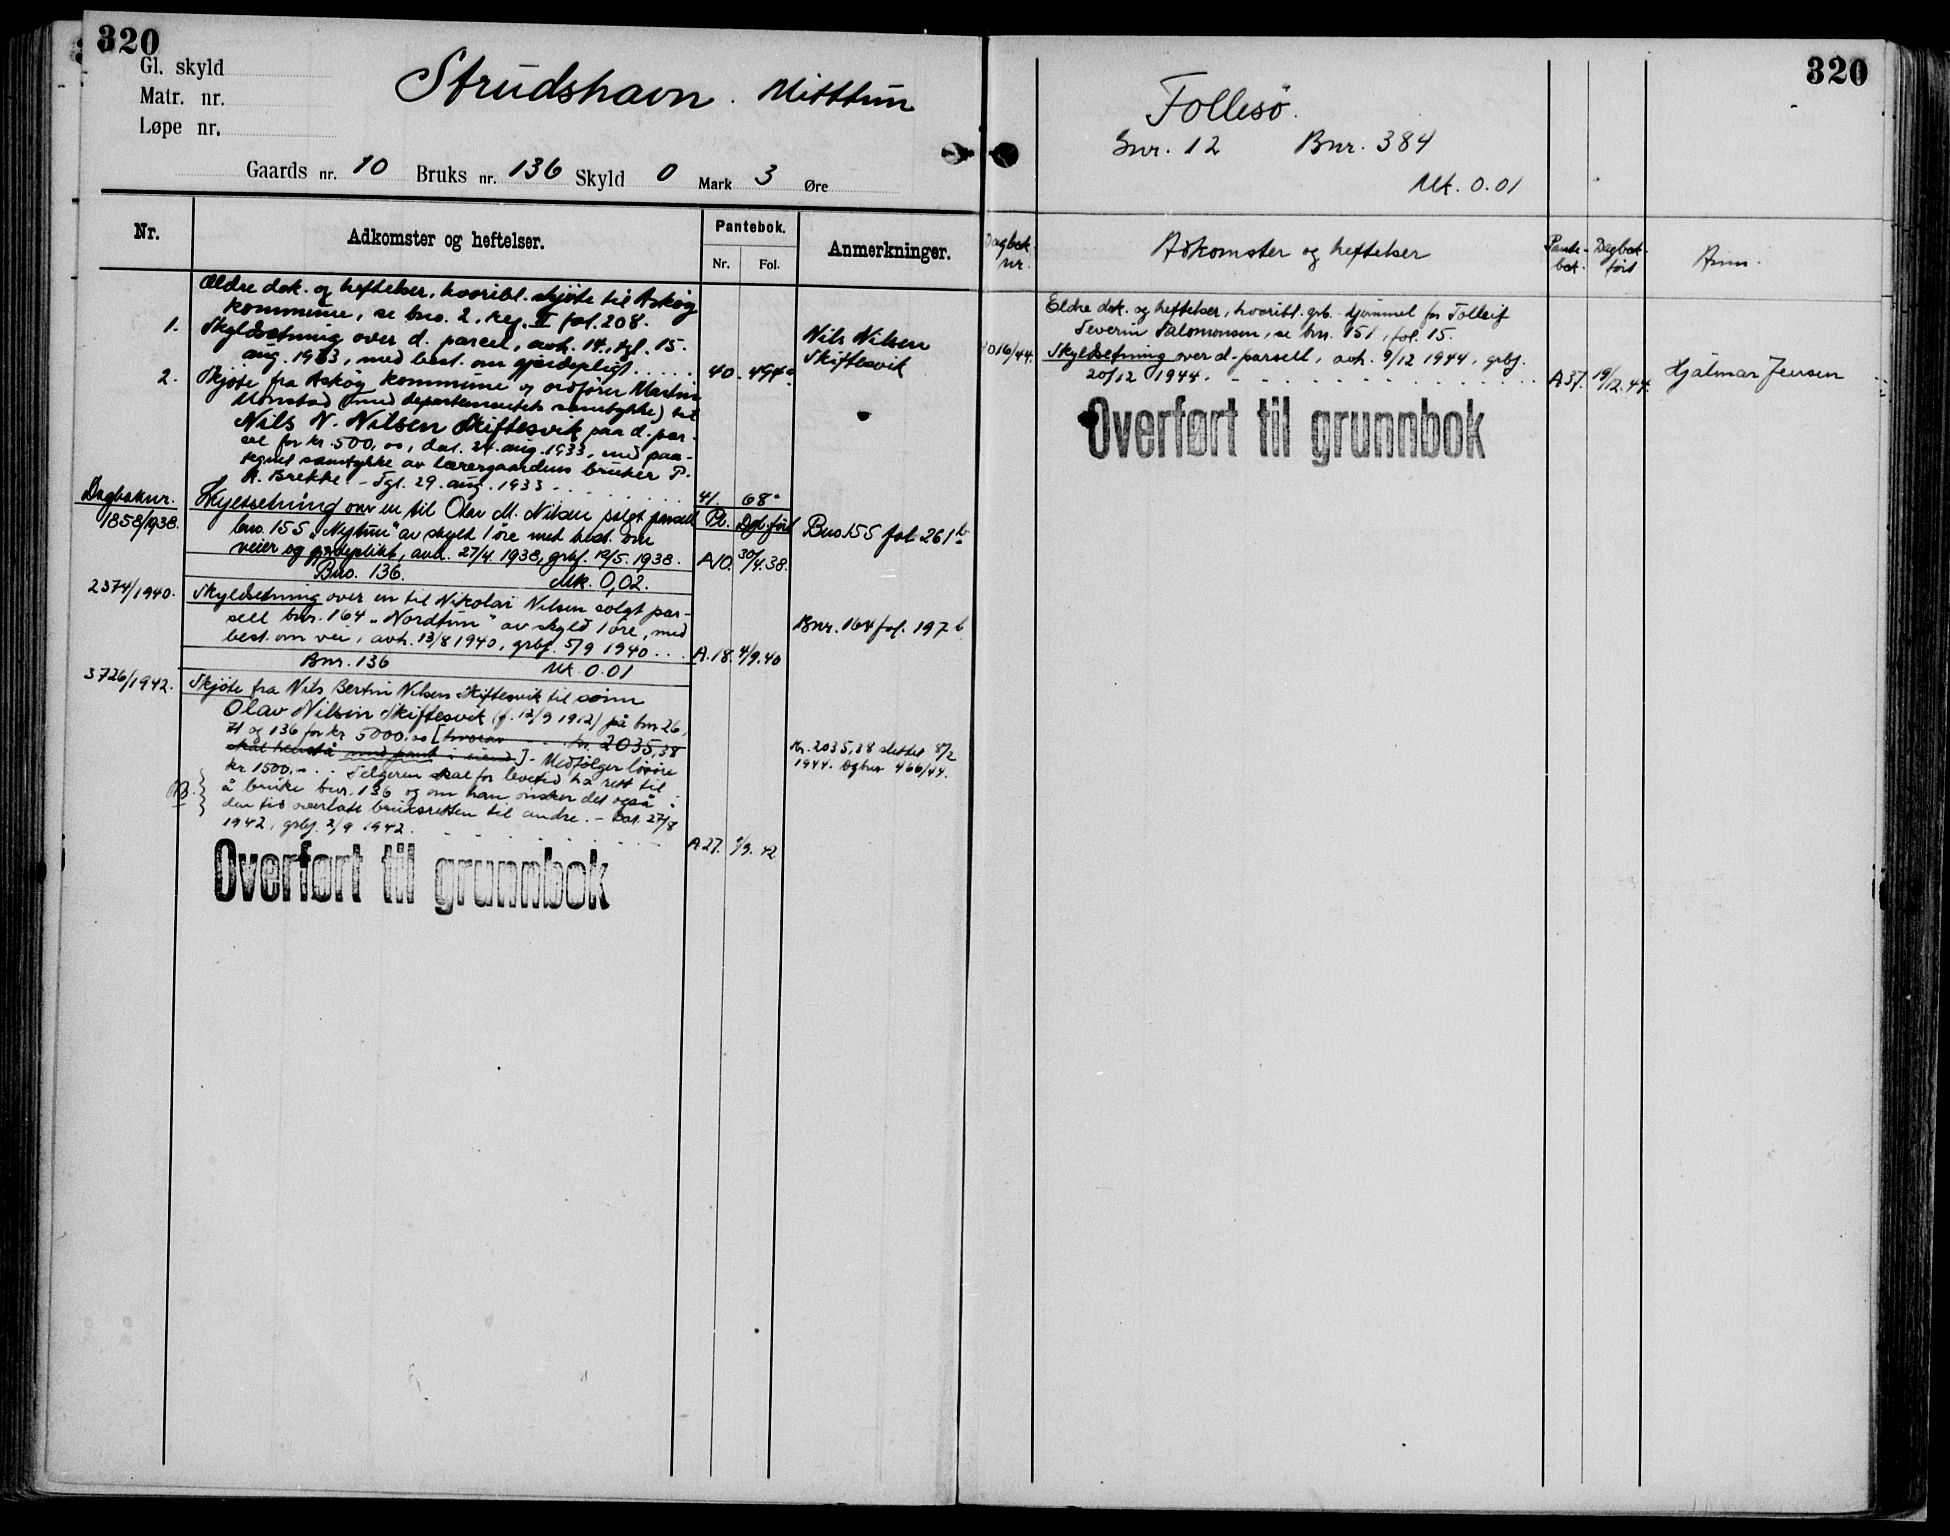 320
Gl. skyld
Matr. nr.
Løpe nr.
Strudshavn. Mitttun
Gaards nr. 10 Bruks nr. 136 Skyld 0 Mark 3 Øre
Nr.
Adkomster og heftelser.
Pantebok.
Nr. Fol.
Anmerkninger.
Ældre dok. og heftelser, hvoribl. skjøte til Askøy
kommune, se bno. 2, reg. II fol. 208.
1. Skyldsetning over d. parcel, avh. 14., tgl. 15.
aug. 1933, med best. om gjerdepligt ..... 40. 494a
Nils Nilsen
Skiftesvik
2. Skjøte fra Askøy kommune og ordfører Martin
Monstad (med departementets samtykke) til
Nils N. Nilsen Skiftesvik paa d. par-
sel for kr. 500,00, dat. 24. aug. 1933, med paa-
tegnet samtykke av lærergaardens bruker P.
A. Brekke - Tgl. 29. aug. 1933 - 41. 68a
Dagboknr.
Pb. Dgb.ført
1858/1938. Skyldsetning over en til Olav M. Nilsen solgt parsell
bno. 155 "Nytun" av skyld 1 øre med best. om
veier og gjerdeplikt, avh. 27/4 1938, grbf. 12/5. 1938. A10. 30/4.38.
Bno 155 fol 261 b
Bno. 136. Mk. 0,02.
2374/1940. Skyldsetning over en til Nikolai Nilsen solgt par-
sell bnr. 164 "Nordtun" av skyld 1 øre, med
best. om vei, avh. 13/8 1940, grbf. 5/9 1940 ... A.18. 4/9.40
Bnr. 164 fol. 197 b
Bnr. 136 Mk. 0.01
3726/1942. Skjøte fra Nils Bertin Nilsen Skiftesvik til sønn
Olav Nilsen Skiftesvik (f. 12/9 1912) på bnr 26,
71 og 136 for kr 5000,00 [hvorav kr. 2035,38
skal henstå med pant i eiend.] - Medfølger løsøre
kr 1500,- . . Selgeren skal for levetid ha rett til
å bruke bnr. 136 og om han ønsker det også i
den tid overlate bruksretten til andre. - Dat. 27/8
1942, grbf. 2/9 1942. A27. 1/9. 42
Kr. 2035,38 slettet 8/2
1944. Dgbnr 466/44.
Overført til grunnbok
320
Follesö.
Gnr. 12 Bnr. 384
Mk. 0.01
Dagbok-
nr.
Adkomster og heftelser
Pante-
bok.
Dagbok-
ført
Anm.
Eldre dok. og heftelser, hvoribl. grb. hjemmel for Tolleif
Severin Salomonsen, se bnr. 151, fol. 15.
4016/44. Skyldsetning over d. parsell, avh. 9/12 1944, grbf.
20/12 1944. A37. 19/12.44. Hjalmar Jensen
Overført til grunnbok